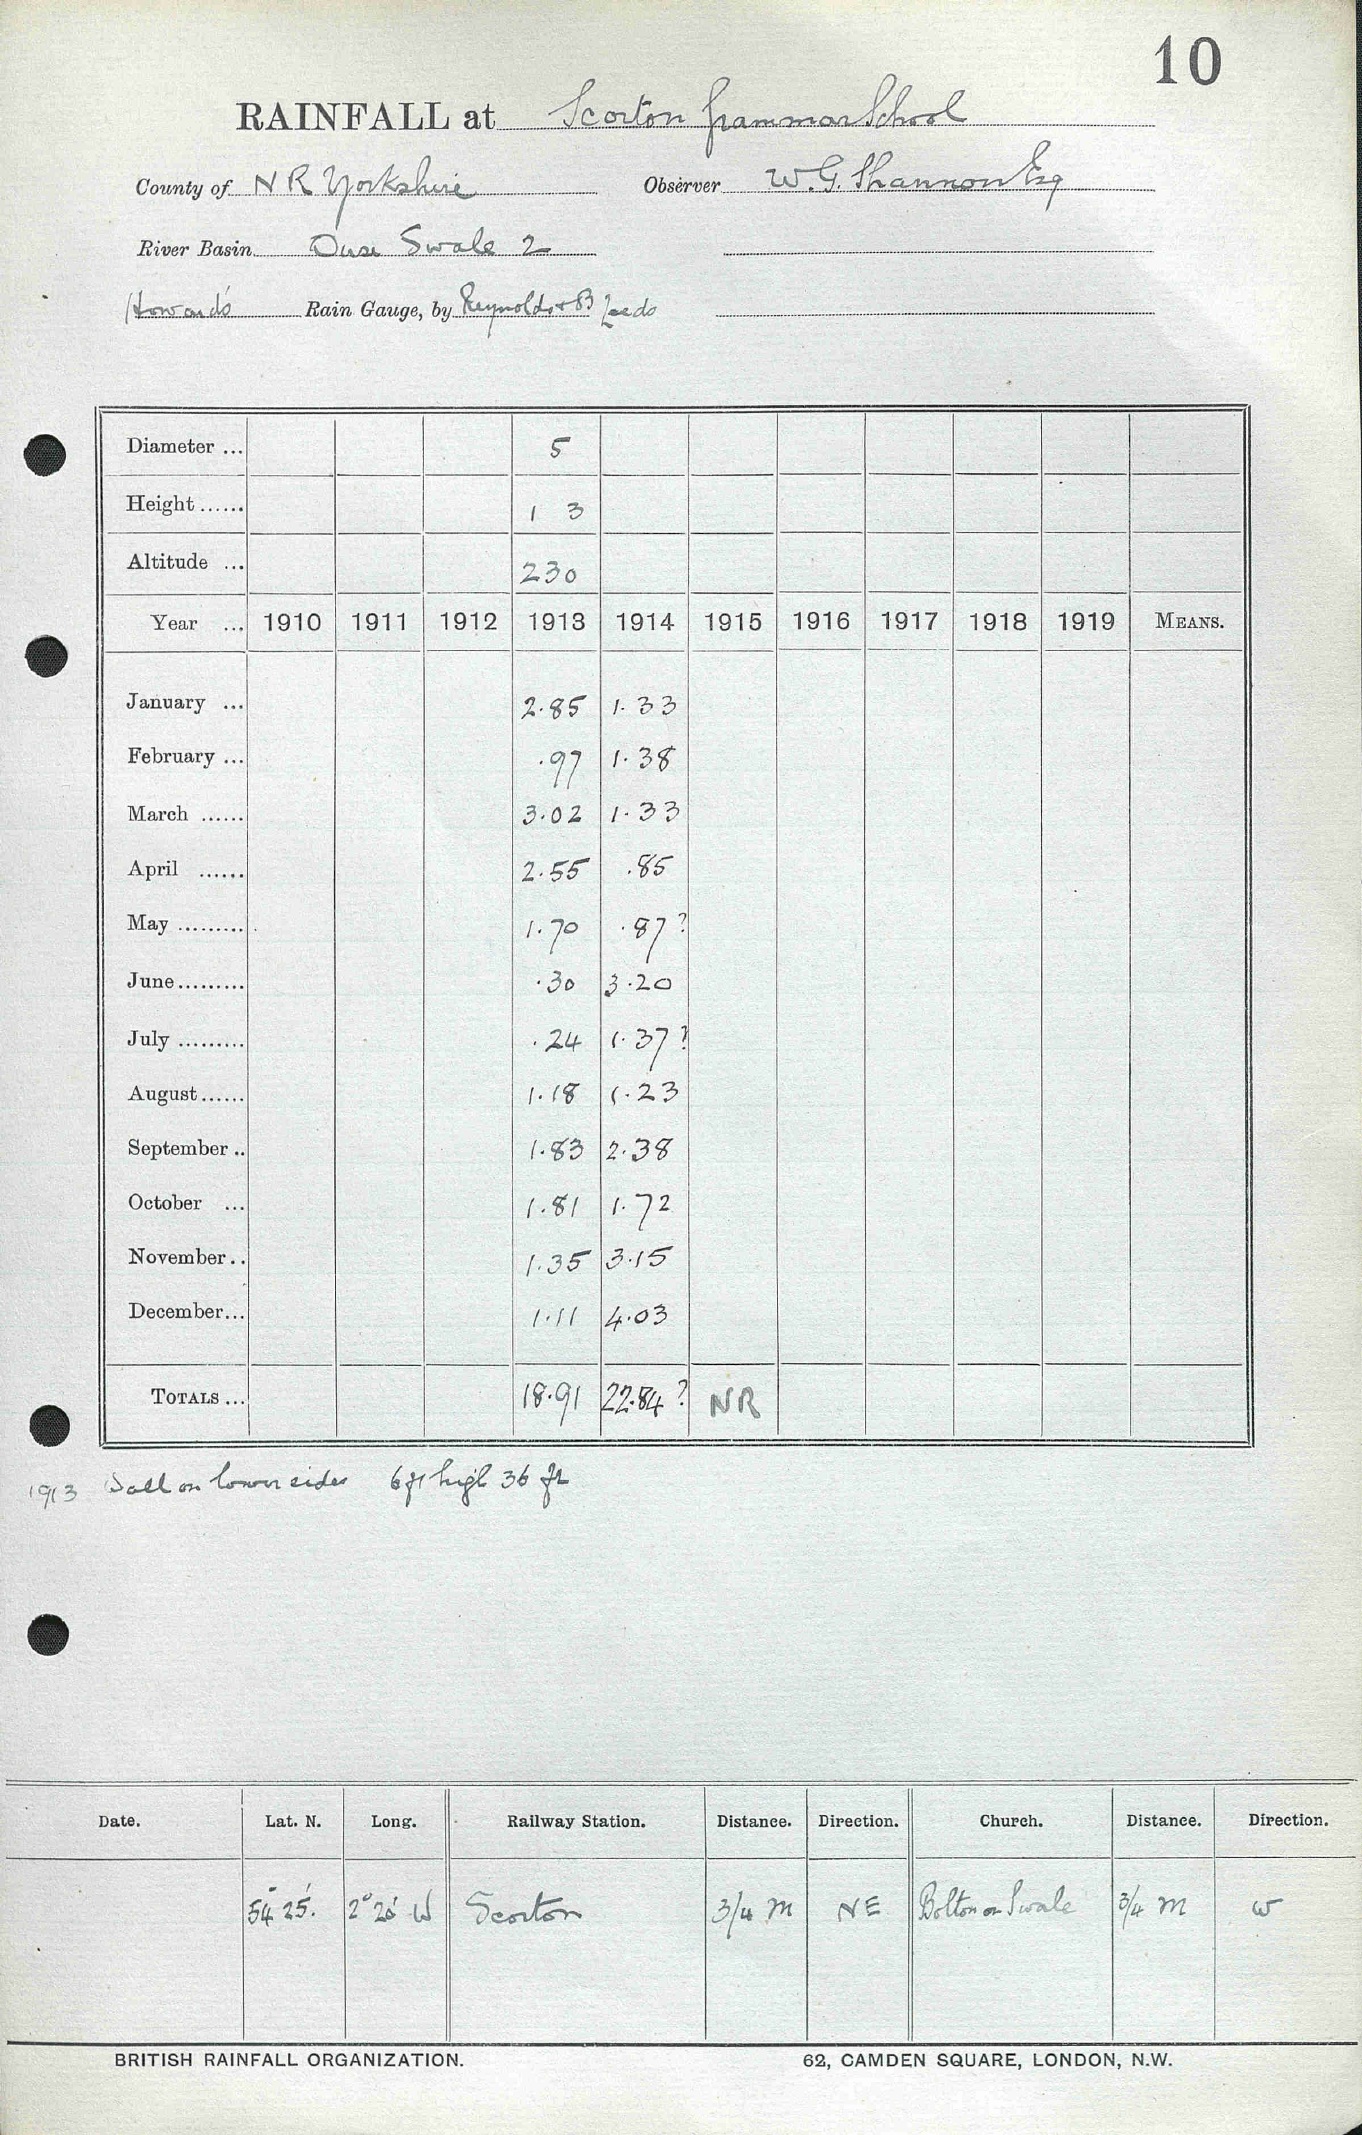 10
RAINFALL at Scorton Grammar School
County of N R Yorkshire Observer W. G. Shannon Esq
River Basin Ouse Swale 2
Howard's Rain Gauge, by Reynolds & B Leeds
Diameter ... 5
Height ...... 1 3
Altitude ... 230
Year ... 1910 1911 1912 1913 1914 1915 1916 1917 1918 1919 MEANS.
January ... 2.85 1.33
February ... .97 1.38
March ...... 3.02 1.33
April ...... 2.55 .85
May ......... 1.70 .87?
June ......... .30 3.20
July ......... .24 1.37?
August ...... 1.18 1.23
September .. 1.83 2.38
October ... 1.81 1.72
November .. 1.35 3.15
December ... 1.11 4.03
TOTALS ... 18.91 22.84? NR
1913 Wall on lower sides 6ft high 36 ft
Date. Lat. N. Long. Railway Station. Distance. Direction. Church. Distance. Direction.
54° 25'. 2° 20' W Scorton 3/4 m NE Bolton on Swale 3/4 m W
BRITISH RAINFALL ORGANIZATION. 62, CAMDEN SQUARE, LONDON, N.W.